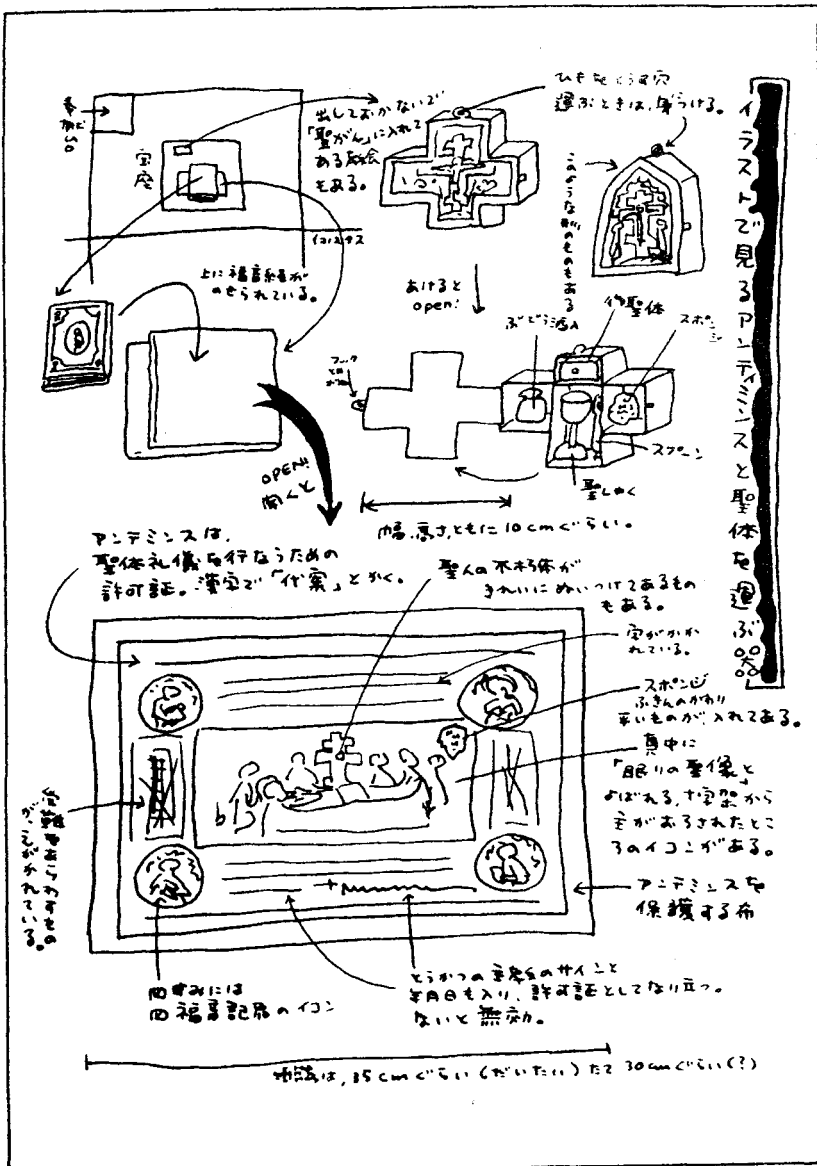 イラストで見るアンティミンスと聖体を運ぶ器
ひもをとうす穴
運ぶときは、身につける。
このような形のものもある
出しておかないで
「聖がん」に入れて
ある教会
もある。
宝座
イコノスタス
上に福音経が
のせられている。
あけると
open!
ぶどう酒入
聖体
スポンジ
スプーン
聖しゃく
幅、高さ、ともに10cmぐらい。
OPEN!
開くと
アンテミンスは、
聖体礼儀を行なうための
許可証。漢字で「代案」とかく。
聖人の不朽体が
きれいにぬいつけてあるもの
もある。
字がかか
れている。
スポンジ
ふきんのかわり
平いものが、入れてある。
真中に
「眠りの聖像」と
よばれる、十字架から
主がおろされたとこ
ろのイコンがある。
アンテミンスを
保護する布
受難をあらわすもの
がえがかれている。
四すみには
四福音記者のイコン
とうかつの主教のサインと
年月日も入り、許可証としてなり立つ。
ないと無効。
は、35cmぐらい(だいたい)たて30cmぐらい(?)